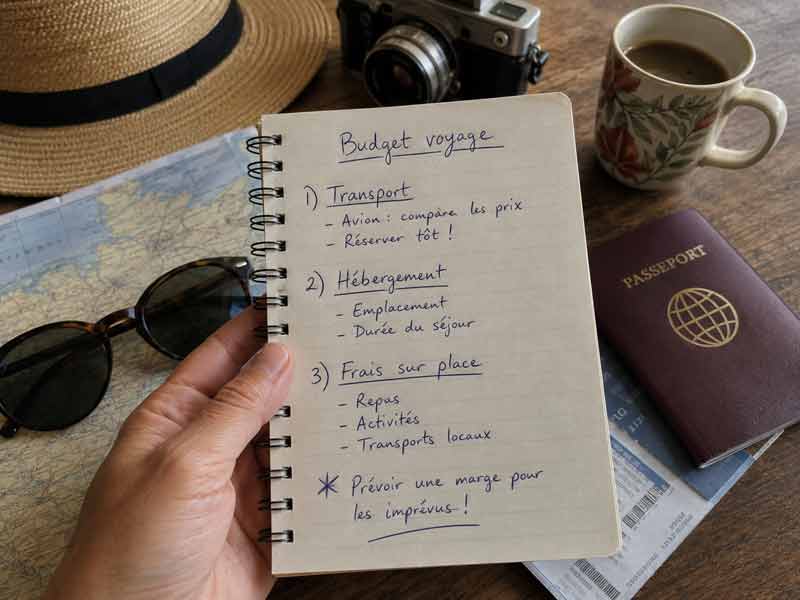 Budget voyage
1) Transport
- Avion : compare les prix
- Réserver tôt !
2) Hébergement
- Emplacement
- Durée du séjour
3) Frais sur place
- Repas
- Activités
- Transports locaux
* Prévoir une marge pour
les imprévus !
PASSEPORT